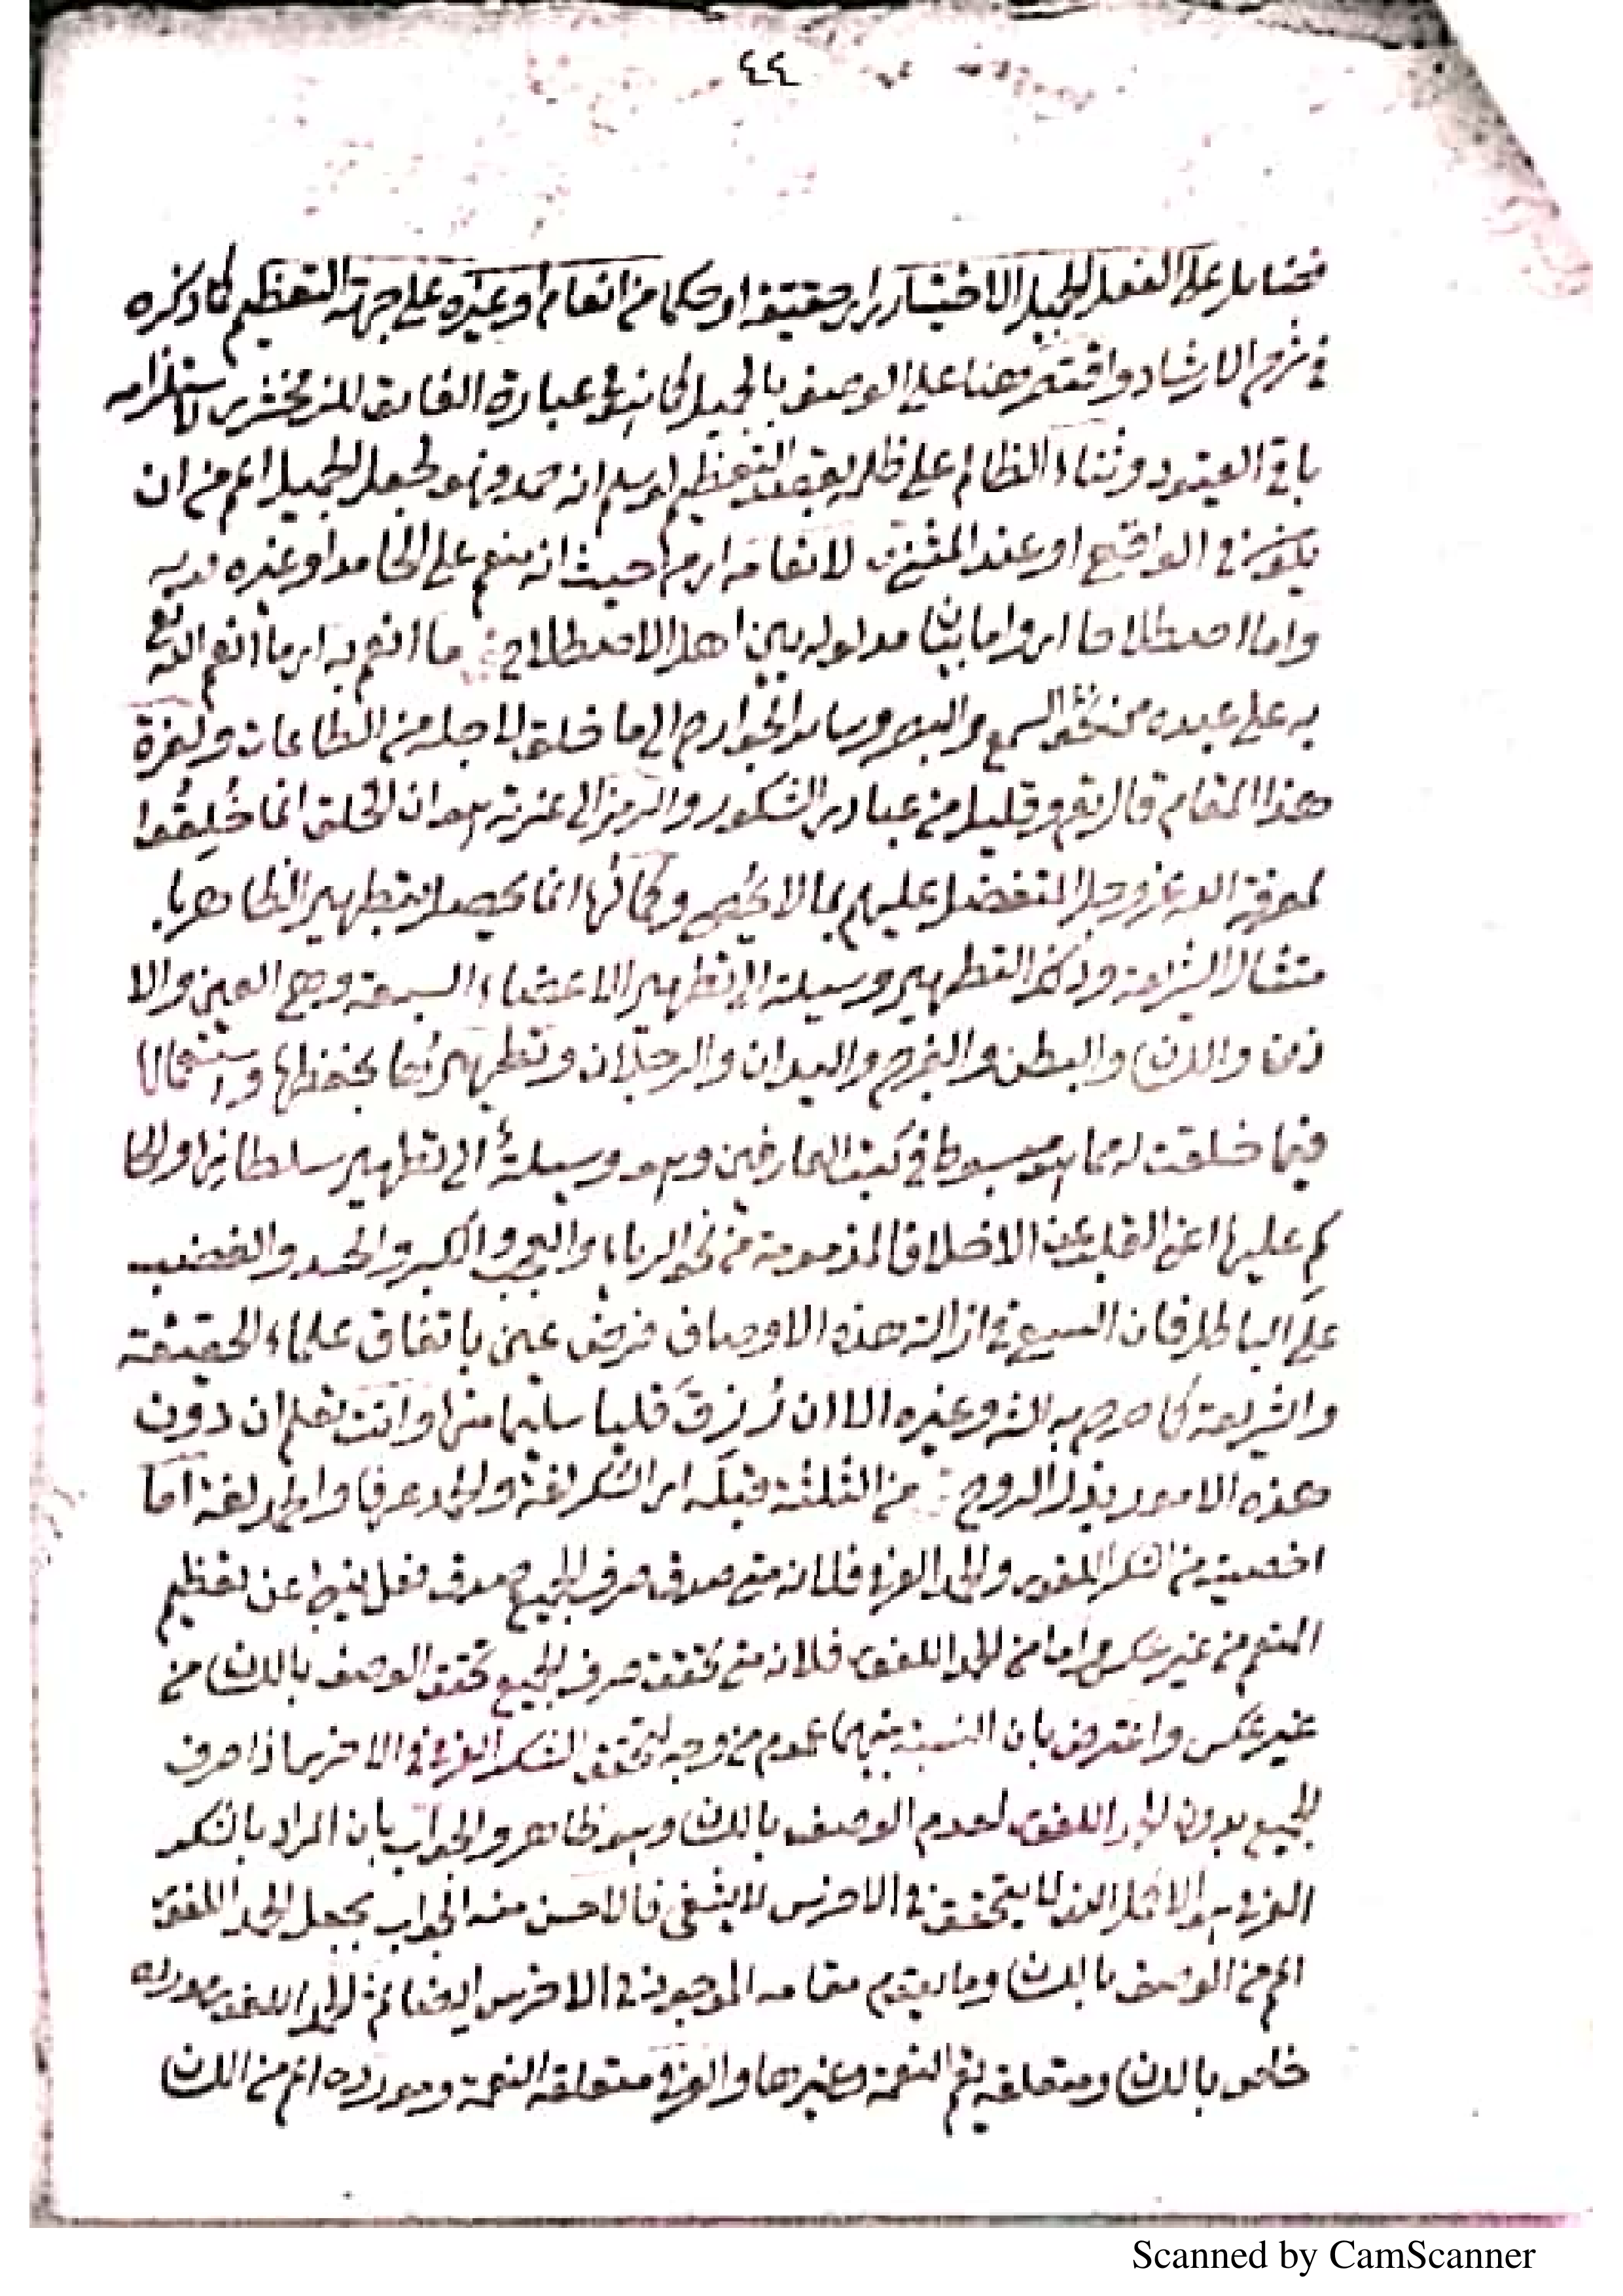 ٤٤
على الفعل الجميل الاختياري حقيقة او حكما من انعام او غيره على جهة التعظيم كما ذكره
في شرح الارشاد واقتصر هنا على الوصف بالجميل كما في عبارة الفايق للزمخشري لاستلزامه
باقي القيود وثناء الظالم على ظلم بقصد التعظيم انه حمد وهو لجعل الجميل اعم من ان
يكون في الواقع او عند المثني لانعامه اي من حيث انه منعم على الحامد او غيره
واما اصطلاحا اي واما بيان مدلوله بين اهل الاصطلاح ما انعم به اي ما انعم الله تع
به على عبده من نحو السمع والبصر وساير الجوارح الى ما خلق لاجله من الطاعات ولعزة
هذا المقام قال تع وقليل من عبادي الشكور والرمز الى عزته هو ان الخلق انما خُلِقُوا
لمعرفة الله عز وجل المتفضل عليهم بما لا يحصى وكمالها انما يحصل بتطهير الظاهر با
متثال الشرايع وذلك التطهير وسيلة الى تطهير الاعضاء السبعة وهي العين والا
ذن واللسان والبطن والفرج واليدان والرجلان وتطهيرها بحفظها واستعمالها
فيما خلقت له مما هو مبسوط في كتب العارفين وهو وسيلة الى تطهير سلطانها والحا
كم عليها اعني القلب عن الاخلاق المذمومة من نحو الرياء والعجب والكبر والحسد والغضب
على الباطل فان السعي في ازالة هذه الاوصاف فرض عين باتفاق علماء الحقيقة
والشريعة كما صرح به وغيره الا ان رُزِقَ قلبا سليما منها وانت تعلم ان دون
هذه الامور بذل الروح من الثلثة قبله اي الشكر لغة والحمد عرفا والحمد لغة اما
اخصيته من الشكر اللغوي والحمد العرفي فلانه متى صدق صرف الجميع صدق فعل ينبئ عن تعظيم
المنعم من غير عكس واما من الحمد اللغوي فلانه متى تحقق صرف الجميع تحقق الوصف باللسان من
غير عكس واعترض بان النسبة بينهما عموم من وجه لتحقق الشكر العرفي في الاخرس اذا صرف
الجميع بدون الحمد اللغوي لعدم الوصف باللسان وهو ظاهر والجواب بان المراد بالشكر
العرفي هو الاكمل الذي لا يتحقق في الاخرس لا يشفي فالاحسن منه الجواب بجعل الحمد اللغوي
اعم من الوصف باللسان وما يقوم مقامه الموجود في الاخرس ايضا ثم الحمد اللغوي مورده
خاص باللسان ومتعلقه يعم النعمة وغيرها والعرفي متعلقه النعمة ومورده اعم من اللسان
Scanned by CamScanner